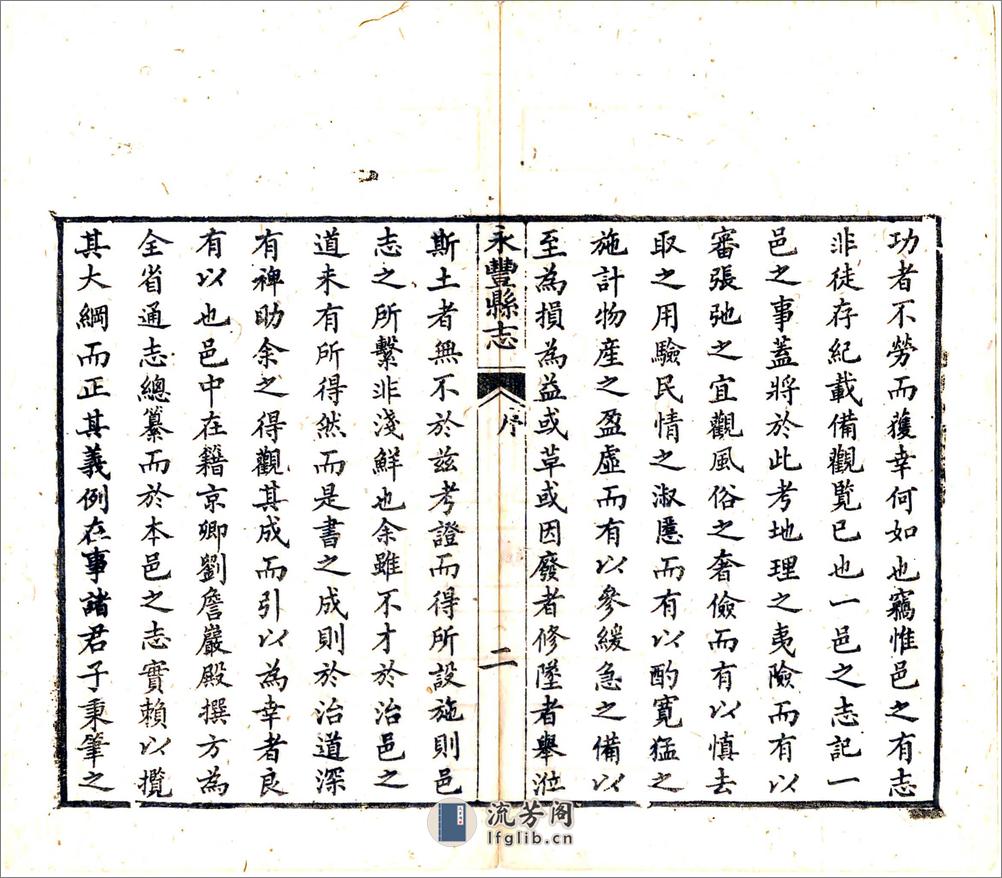 功者不勞而獲幸何如也竊惟邑之有志
非徒存紀載備觀覽已也一邑之志記一
邑之事蓋將於此考地理之夷險而有以
審張弛之宜觀風俗之奢儉而有以慎去
取之用驗民情之淑慝而有以酌寬猛之
施計物產之盈虛而有以參緩急之備以
至為損為益或革或因廢者修墜者舉涖
永豐縣志
序
二
斯土者無不於茲考證而得所設施則邑
志之所繫非淺鮮也余雖不才於治邑之
道未有所得然而是書之成則於治道深
有裨助余之得觀其成而引以為幸者良
有以也邑中在籍京卿劉詹巖殿撰方為
全省通志總纂而於本邑之志實賴以攬
其大綱而正其義例在事諸君子秉筆之
流芳阁
lfglib.cn